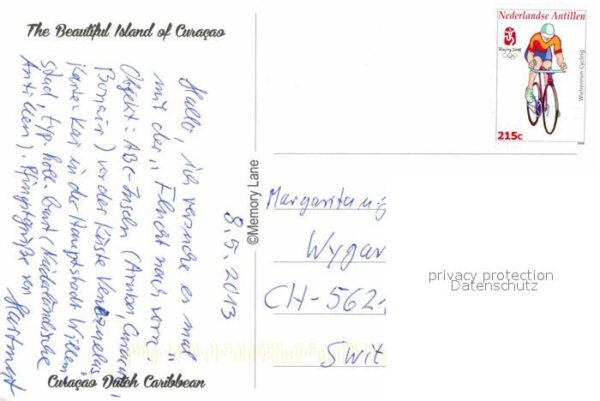 The Beautiful Island of Curaçao
8.5.2013
Hallo, ich versuche es mal
mit der „Flucht nach vorn“.
Objekt: ABC-Inseln (Aruba, Curaçao,
Bonair) vor der Küste Venezuelas
Karte: Kai in der Hauptstadt Willem
Stad, typ. holl. Bunt (Niederländische
Antillen). Pfingstgrüße von
Hartmut
Curaçao Dutch Caribbean
©Memory Lane
Nederlandse Antillen
Beijing 2008
Wielrennen-Cycling
215c
Margarita
Wygar
CH-562
Swit
privacy protection
Datenschutz